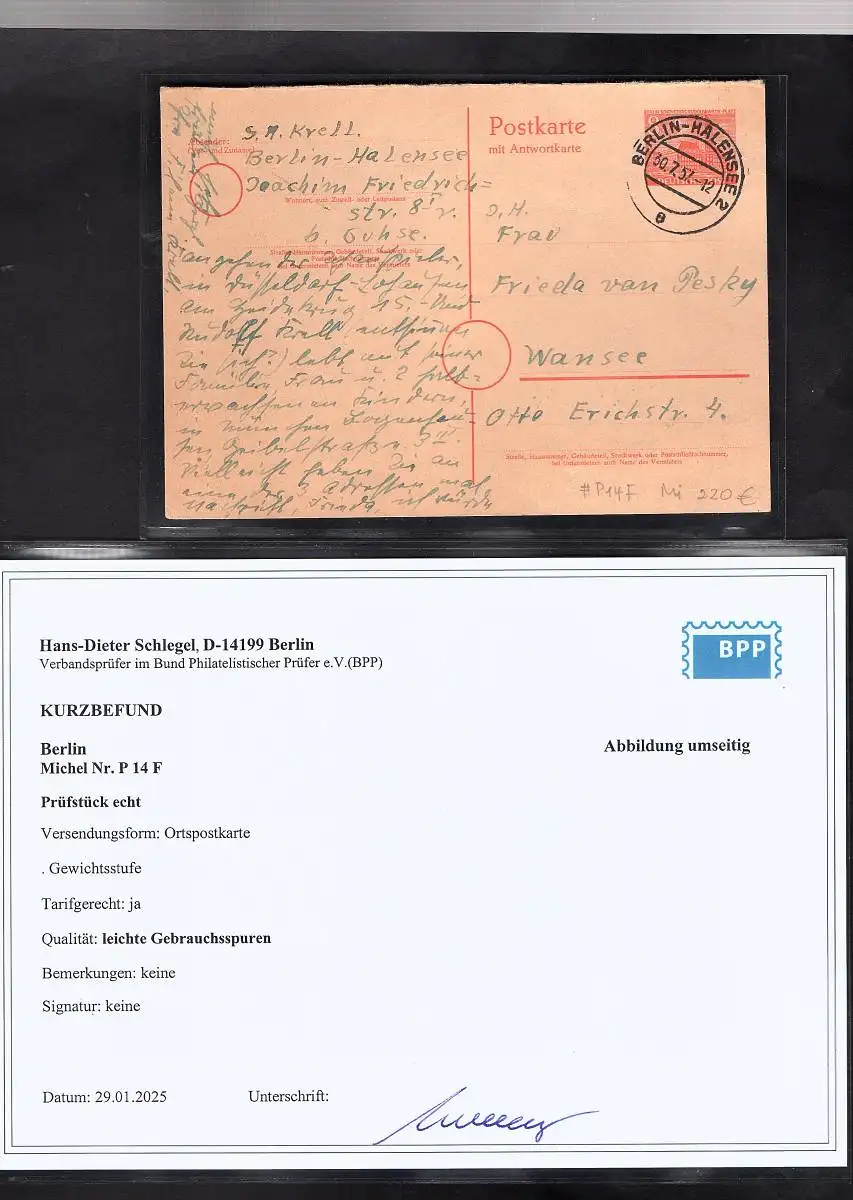 Absender:
S. M. Krell.
Berlin-Halensee
Joachim Friedrich=
str. 8
b. Guhse.
Wohnort, auch Zustell- oder Leitpostamt
Straße, Hausnummer, Gebäudeteil, Stockwerk oder
Postschließfachnummer,
bei Untermietern auch Name des Vermieters
angehender
in Düsseldorf-Lohausen
am Heidekrug 15.- Und
Rudolf Krell
Sie (ich?) lebt mit seiner
Familie, Frau u. 2 halb-
erwachsenen Kindern,
in München
Geibelstraße 3
Vielleicht geben Sie an
eine der 3 Adressen mal
Nachricht, Frieda, ich würde
Postkarte
mit Antwortkarte
BERLIN-HALENSEE 2
30.7.57.-12
a
Frau
Frieda van Pesky
Wansee
Otto Erichstr. 4.
Straße, Hausnummer, Gebäudeteil, Stockwerk oder Postschließfachnummer,
bei Untermietern auch Name des Vermieters
#P14F Mi 220€
Hans-Dieter Schlegel, D-14199 Berlin
Verbandsprüfer im Bund Philatelistischer Prüfer e.V.(BPP)
BPP
KURZBEFUND
Berlin
Abbildung umseitig
Michel Nr. P 14 F
Prüfstück echt
Versendungsform: Ortspostkarte
. Gewichtsstufe
Tarifgerecht: ja
Qualität: leichte Gebrauchsspuren
Bemerkungen: keine
Signatur: keine
Datum: 29.01.2025
Unterschrift: